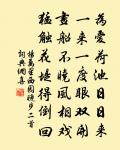 為愛荷池日日來
一來一度眼雙開
畫船不曉風相戲
猛觸花堤得倒回
楊萬里西園晚步二首
詞典網